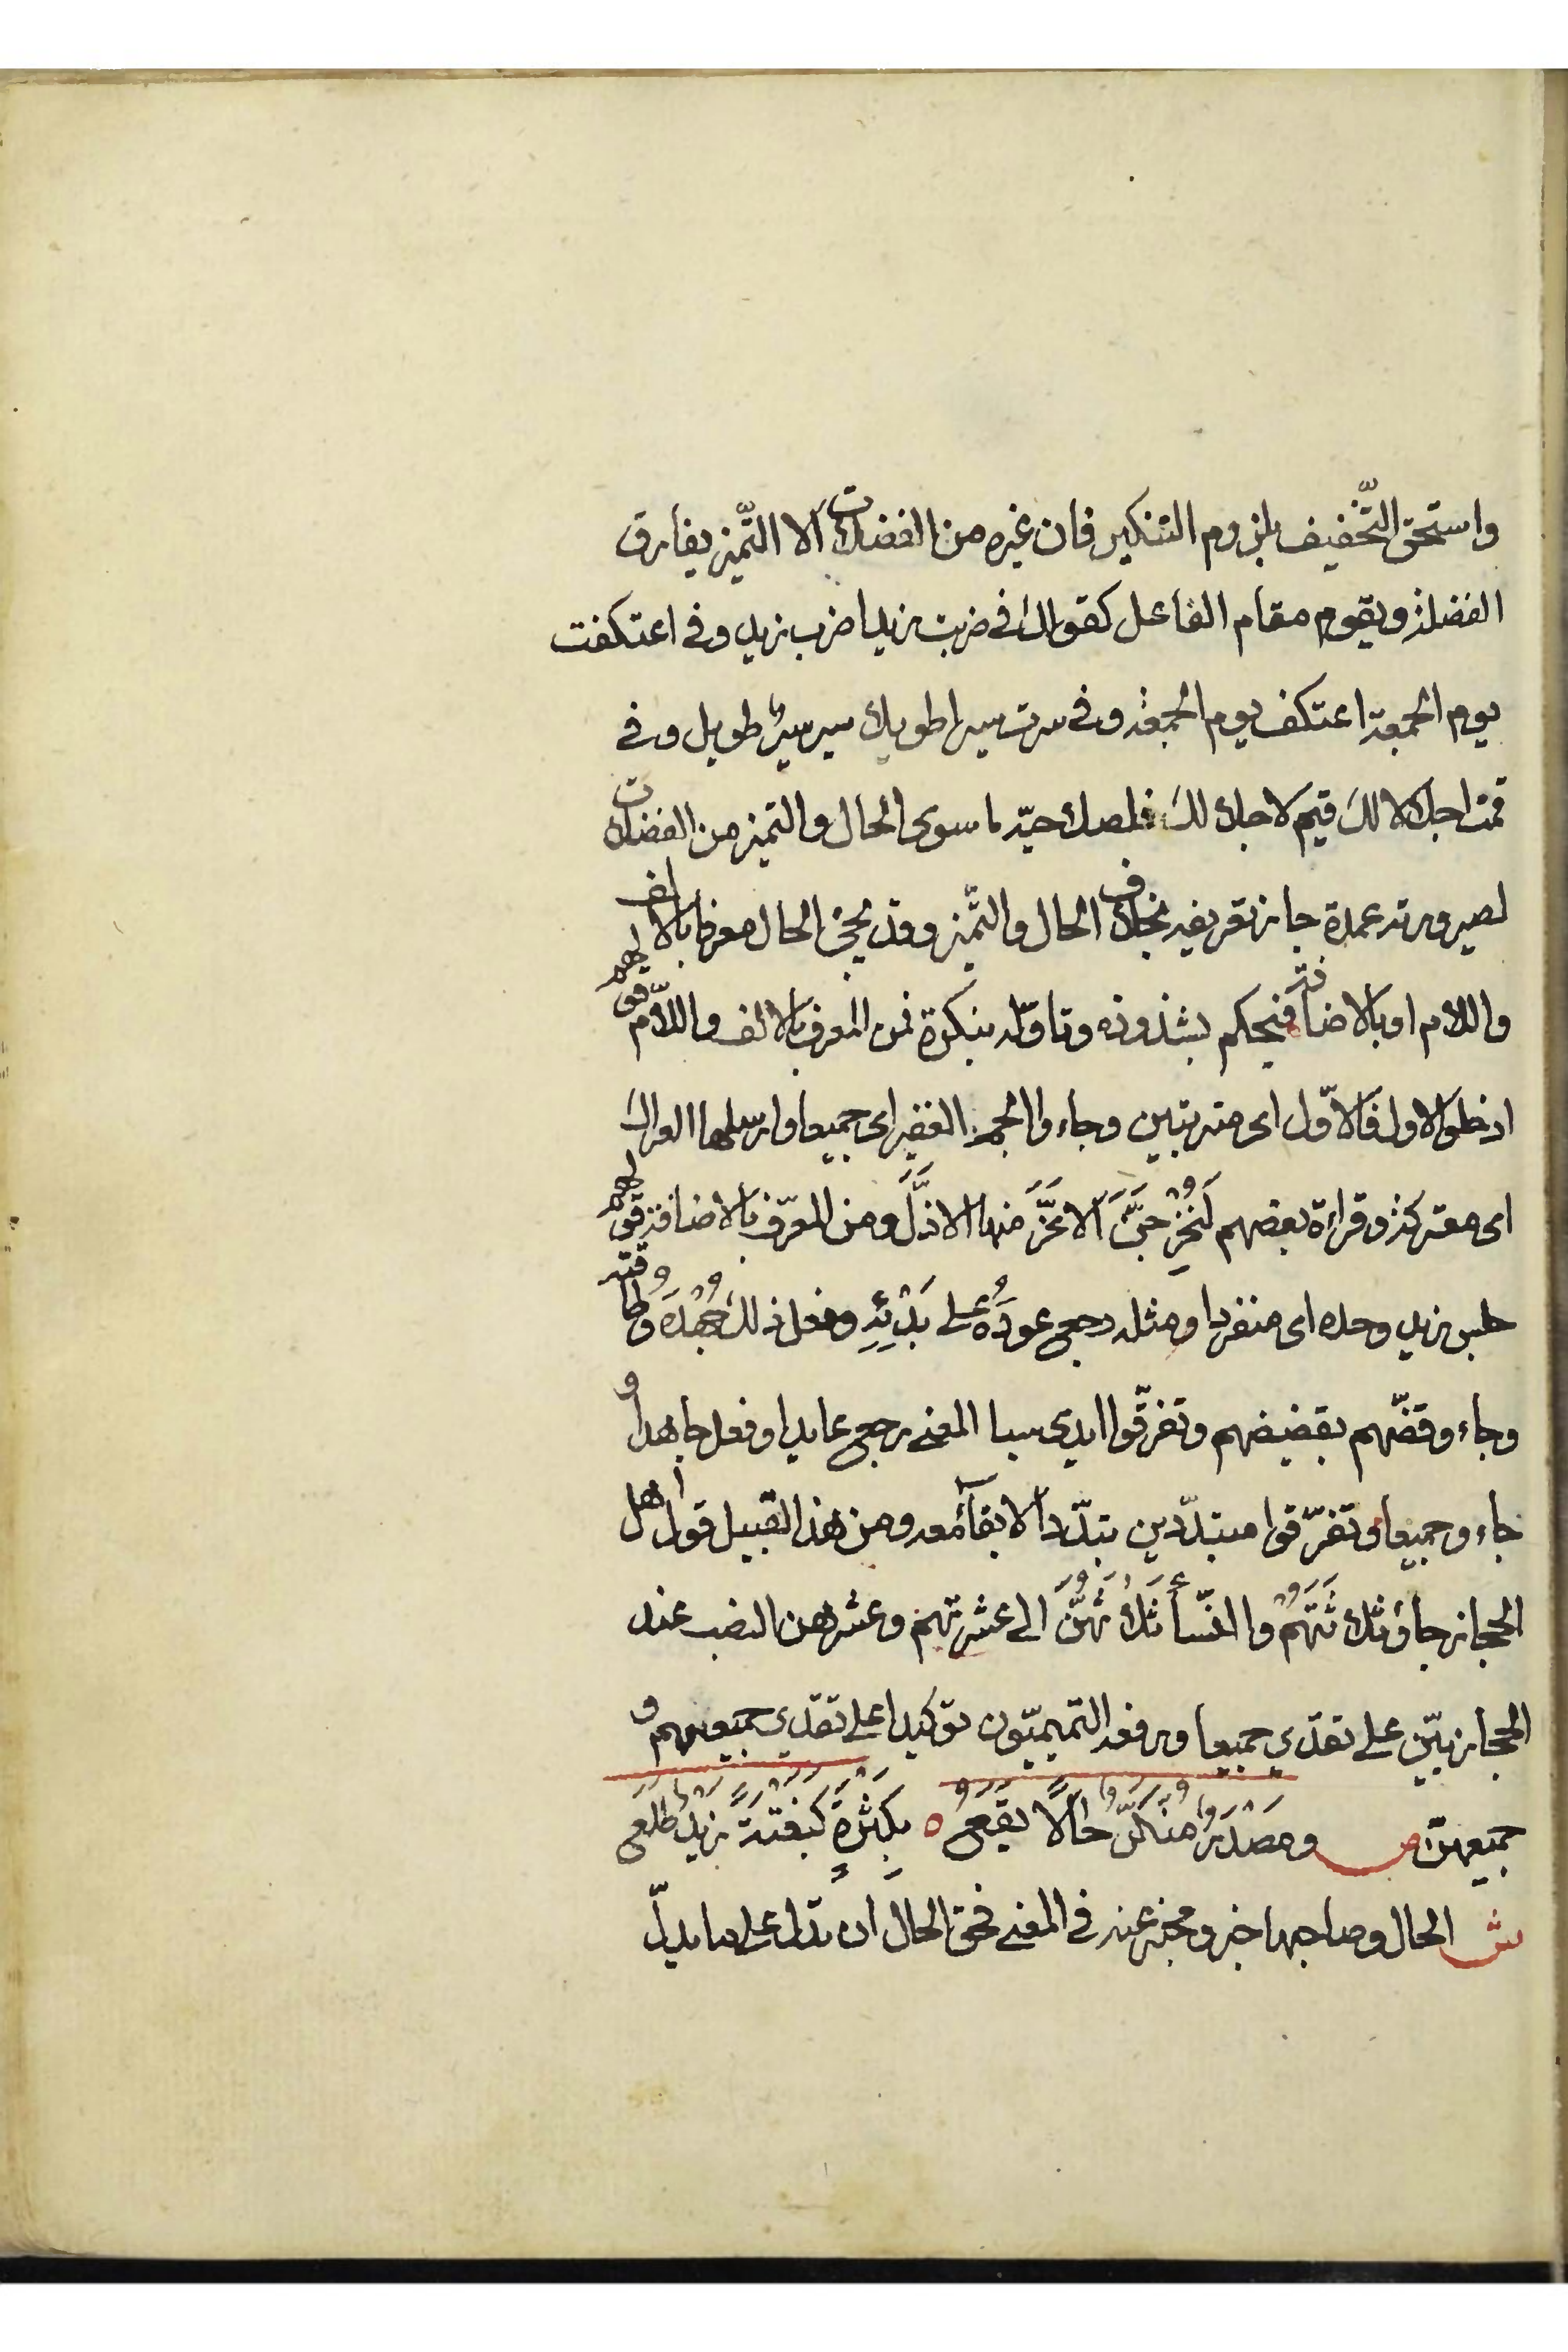 واستحق التّخفيف بلزوم التنكير فان غيره من الفضلات الا التّميز يفارق
الفضلة ويقوم مقام الفاعل كقولك في ضربت زيدا ضرب زيد وفي اعتكفت
يوم الجمعة اعتكف يوم الجمعة وفي سرت سيرا طويلا سير سيرٌ طويل وفي
قمت اجلالا لك قيم لاجلال لك فلصلاحيّة ما سوى الحال والتميز من الفضلات
لصيرورته عمدة جاز تعريفه بخلاف الحال والتّميز وقد يجئ الحال معرفا بالالف
واللام او بالاضافة فيحكم بشذوذه وتاوّله بنكرة فمن المعرف بالالف واللاّم قولهم
ادخلوا الاول فالاوّل اى مترتبين وجاءوا الجم الغفير اى جميعا وارسلها العراك
اى معتركة وقراءة بعضهم لَيَخْرُجَنَّ الاَعَزَّ منها الاذَلَّ ومن المعرّف بالاضافة قولهم
جلس زيد وحده اى منفردا ومثله رجع عودَهُ على بَدْئِهِ وفعل ذلك جُهْدَه وطاقته
وجاءوا قضّهم بقضيضهم وتفرّقوا ايدي سبا المعنى رجع عايدا وفعل جاهدا و
جاءوا جميعا وتفرّقوا متبدّدين تبدّدا لا بقآء معه ومن هذا القبيل قول اهل
الحجاز جاؤا ثلاثَتَهُم والنّسأ ثلاثَهُنَّ الى عشرتهم وعشرهن النصب عند
الحجازيّين على تقدير جميعا ورفعه التميميّون توكيدا على تقدير جميعهم و
جميعهنّ ص ومَصْدَرٌ مُنَكَّرٌ حَالًا يَقَعْ ٥ بِكَثْرَةٍ كَبَغْتَةً زَيْدٌ طَلَعْ
ش الحال وصاحبها خبر ومخبر عنه في المعنى فحق الحال ان تدل على ما يدلّ